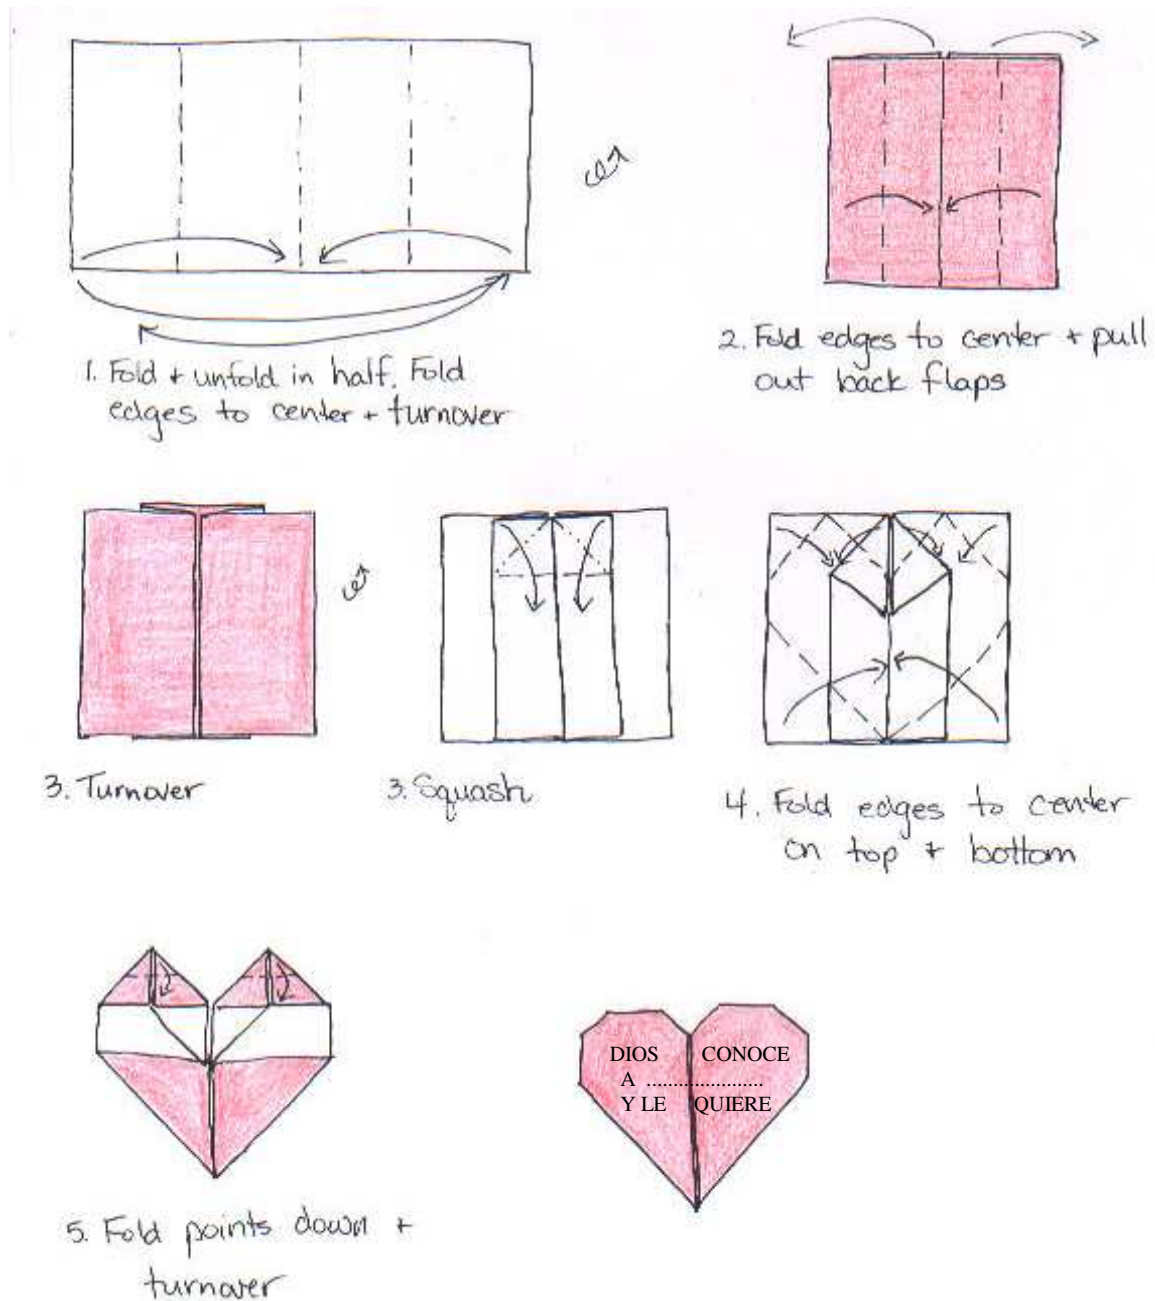 1. Fold + unfold in half. Fold
edges to center + turnover
2. Fold edges to center + pull
out back flaps
3. Turnover
3. Squash
4. Fold edges to center
on top + bottom
5. Fold points down +
turnover
DIOS CONOCE
A ......................
Y LE QUIERE